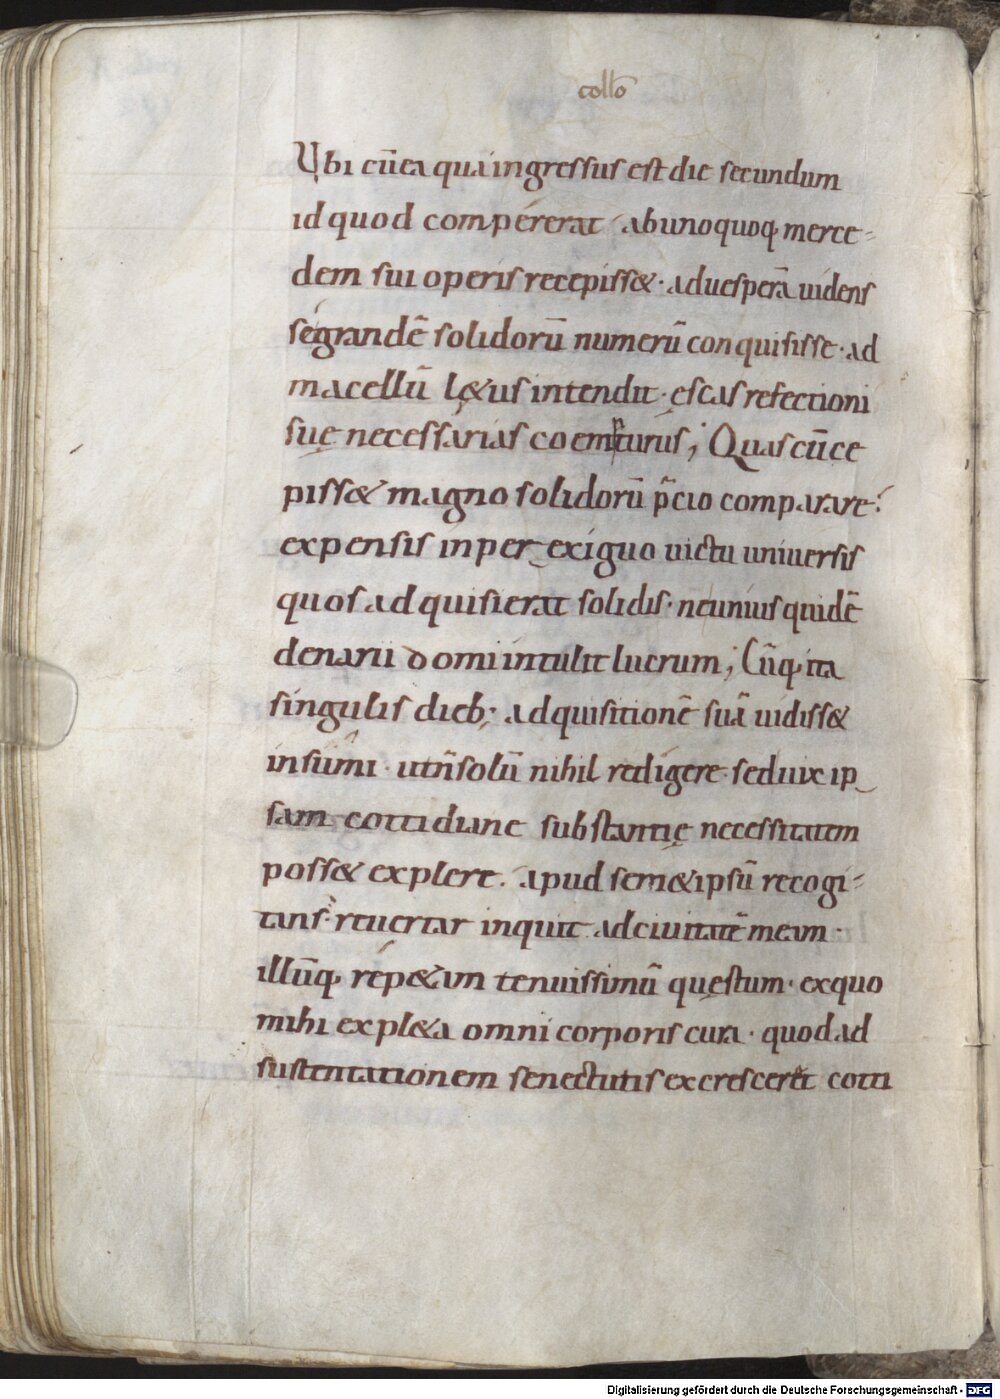 collō
Ubi cūea qua ingressus est die secundum
id quod compererat ab unoquoq; merce-
dem sui operis recepiss&· ad uesperā uidens
se grandē solidorū numerū conquisisse· ad
macellū l&us intendit· escas refectioni
suę necessarias coempturus; Quas cū ce
piss& magno solidorū p̄cio comparare·
expensis in per exiguo uictu uniuersis
quos adquisierat solidis· ne unius quidē
denarii domi intulit lucrum; Cūq; ita
singulis dieb; adquisitionē suā uidiss&
insumi· ut n̄ solū nihil redigere· sed uix ip
sam cottidianę substantię necessitatem
poss& explere. apud sem&ipsū recogi-
tans· reuertar inquit ad ciuitatē meam·
illūq; rep&am tenuissimū quęstum· ex quo
mihi expl&a omni corporis cura· quod ad
sustentationem senectutis excresceret cotti
Digitalisierung gefördert durch die Deutsche Forschungsgemeinschaft - DFG